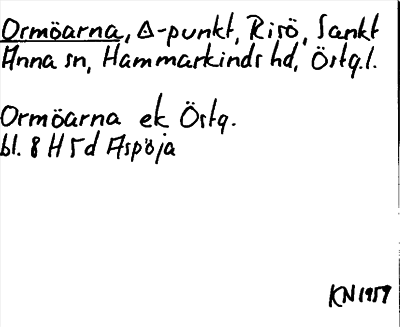 Ormöarna, Δ-punkt, Risö, Sankt
Anna sn, Hammarkinds hd, Östg.l.
Ormöarna ek Östg.
bl. 8 H 5d Aspöja
KN 1959